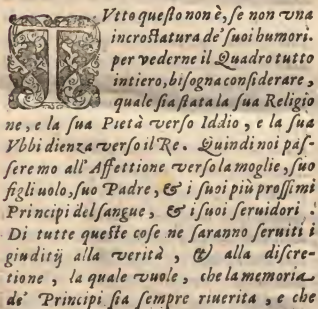 TVtto questo non è, se non vna
incrostatura de' suoi humori.
per vederne il Quadro tutto
intiero, bisogna considerare,
quale sia stata la sua Religio
ne, e la sua Pietà verso Iddio, e la sua
Vbbidienza verso il Re. Quindi noi pas-
seremo all'Affettione verso la moglie, suo
figliuolo, suo Padre, & i suoi più prossimi
Principi del sangue, & i suoi seruidori.
Di tutte queste cose ne saranno seruiti i
giuditij alla verità, & alla discre-
tione, la quale vuole, che la memoria
de' Principi sia sempre riuerita, e che